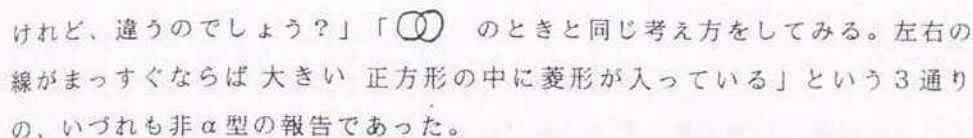 けれど、違うのでしょう？」「 のときと同じ考え方をしてみる。左右の
線がまっすぐならば 大きい 正方形の中に菱形が入っている」という３通り
の、いづれも非α型の報告であった。